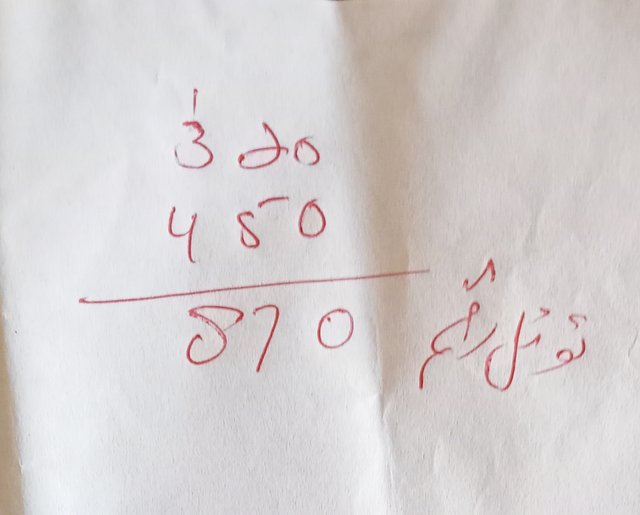 1
320
450
870 ٹوٹل رقم